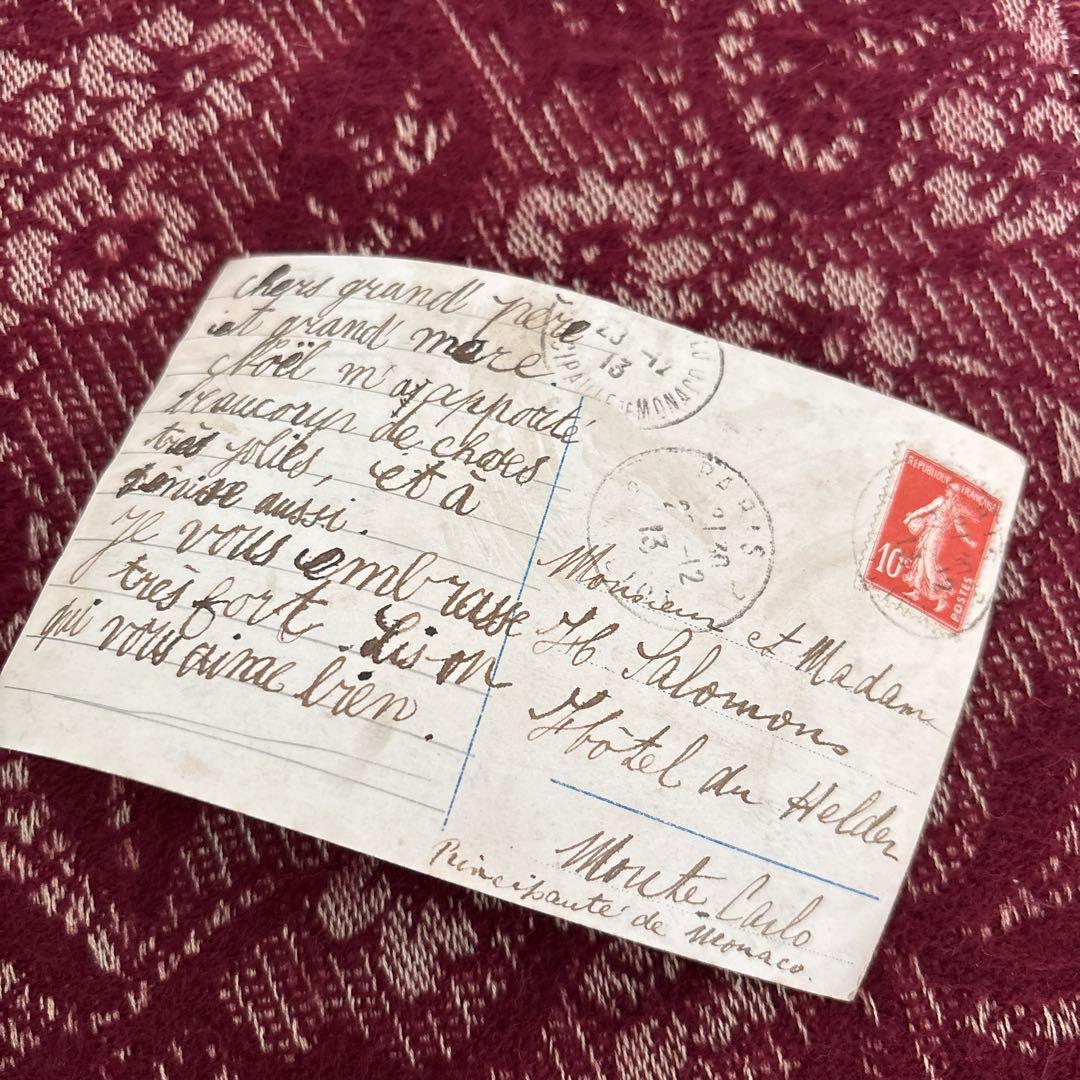 chers grand père
et grand mere.
Noël m'a apporté
beaucoups de choses
très jolies, et à
Denise aussi.
Je vous embrasse
très fort Lison
qui vous aime bien.
23 -12
13
MONACO
PARIS
21 30
22 -12
13
REPUBLIQUE FRANÇAISE
10c
POSTES
Monsieur et Madam
H Salomons
Hôtel du Helder
Monte Carlo
Principauté de Monaco.